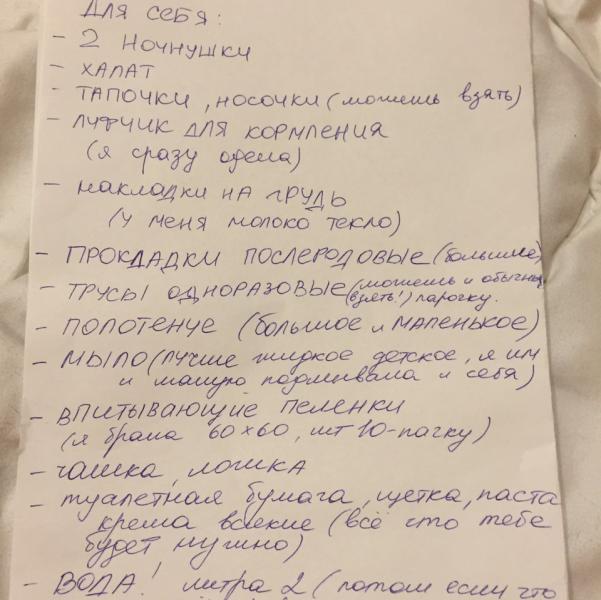 Для себя:
- 2 ночнушки
- халат
- тапочки, носочки (можешь взять)
- лифчик для кормления
(я сразу одела)
- накладки на грудь
(у меня молоко текло)
- прокладки послеродовые (большие)
- трусы одноразовые (можешь и обычных
взять!) парочку.
- полотенце (большое и маленькое)
- мыло (лучше жидкое детское, я им
и машую подмывала и себя)
- впитывающие пеленки
(я брала 60х60, шт 10-пачку)
- чашка, ложка
- туалетная бумага, щетка, паста
крема всякие (всё что тебе
будет нужно)
- ВОДА! литра 2 (потом если что